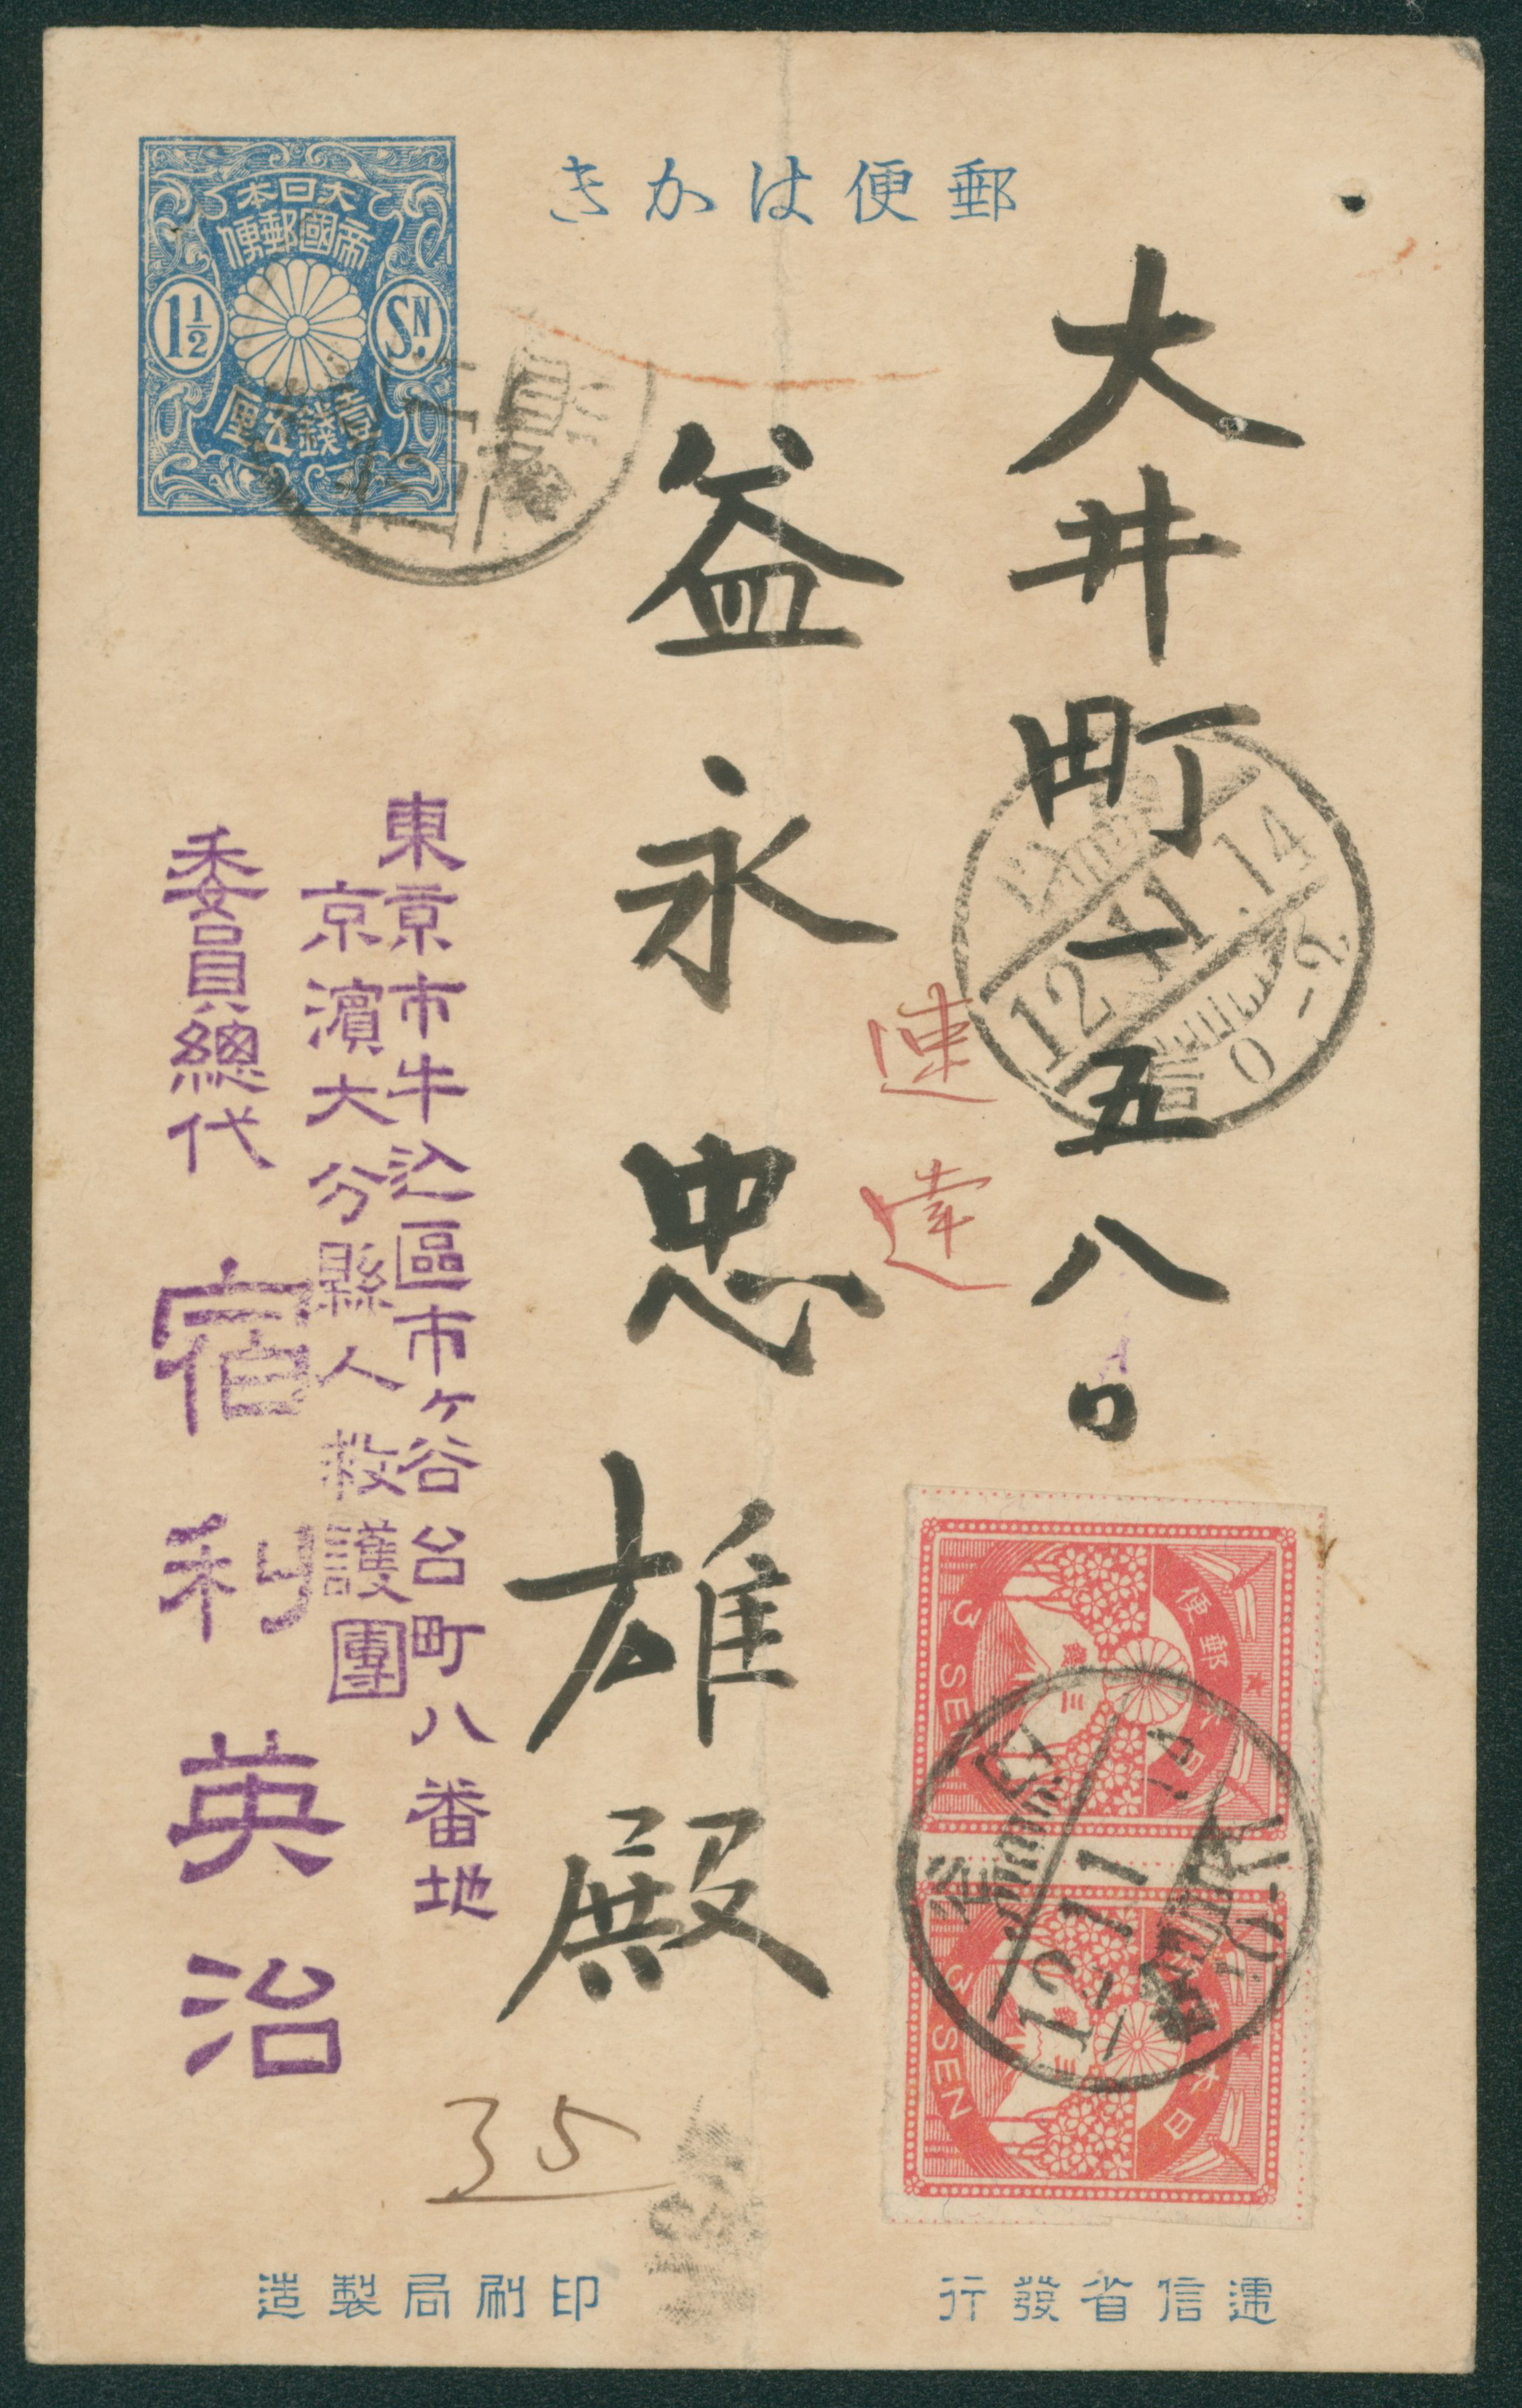 郵便はかき
大日本
帝國郵便
1½ SN.
壹錢五厘
大井町一五八〇
益永忠雄殿
速達
東京市牛込區市ヶ谷台町八番地
京濱大分縣人救護團
委員總代 宿利英治
12.11.14
0-2
日本郵便
三錢
3 SEN
日本
三錢
3 SEN
12.11
35
遞信省發行
印刷局製造